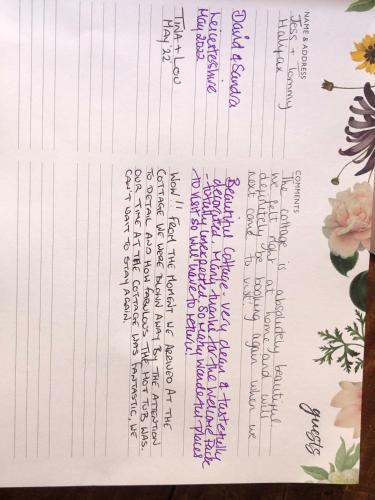 guests
NAME & ADDRESS
COMMENTS
Jess + Tommy
Halifax
The cottage is absolutely beautiful
we felt right at home and will
definitely be booking again when we
next come to visit.
David & Sandra
Leicestershire
May 2022
Beautiful Cottage very clean & tastefully
decorated. Many thanks for the Welcome Pack
- totally unexpected. So many wonderful places
to visit so will have to return!
TINA + LOU
MAY '22
WOW!! FROM THE MOMENT WE ARRIVED AT THE
COTTAGE WE WERE BLOWN AWAY BY THE ATTENTION
TO DETAIL AND HOW FABULOUS THE HOT TUB WAS.
OUR TIME AT THE COTTAGE WAS FANTASTIC, WE
CAN'T WAIT TO STAY AGAIN.